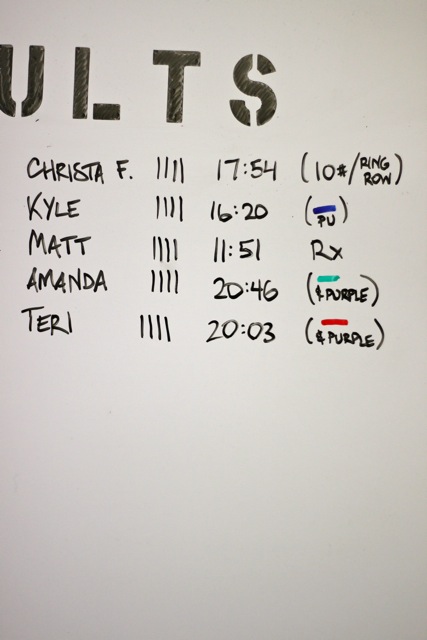 ULTS
CHRISTA F. |||| 17:54 (10#/RING ROW)
KYLE |||| 16:20 (PU)
MATT |||| 11:51 Rx
AMANDA |||| 20:46 (& PURPLE)
TERI |||| 20:03 (& PURPLE)